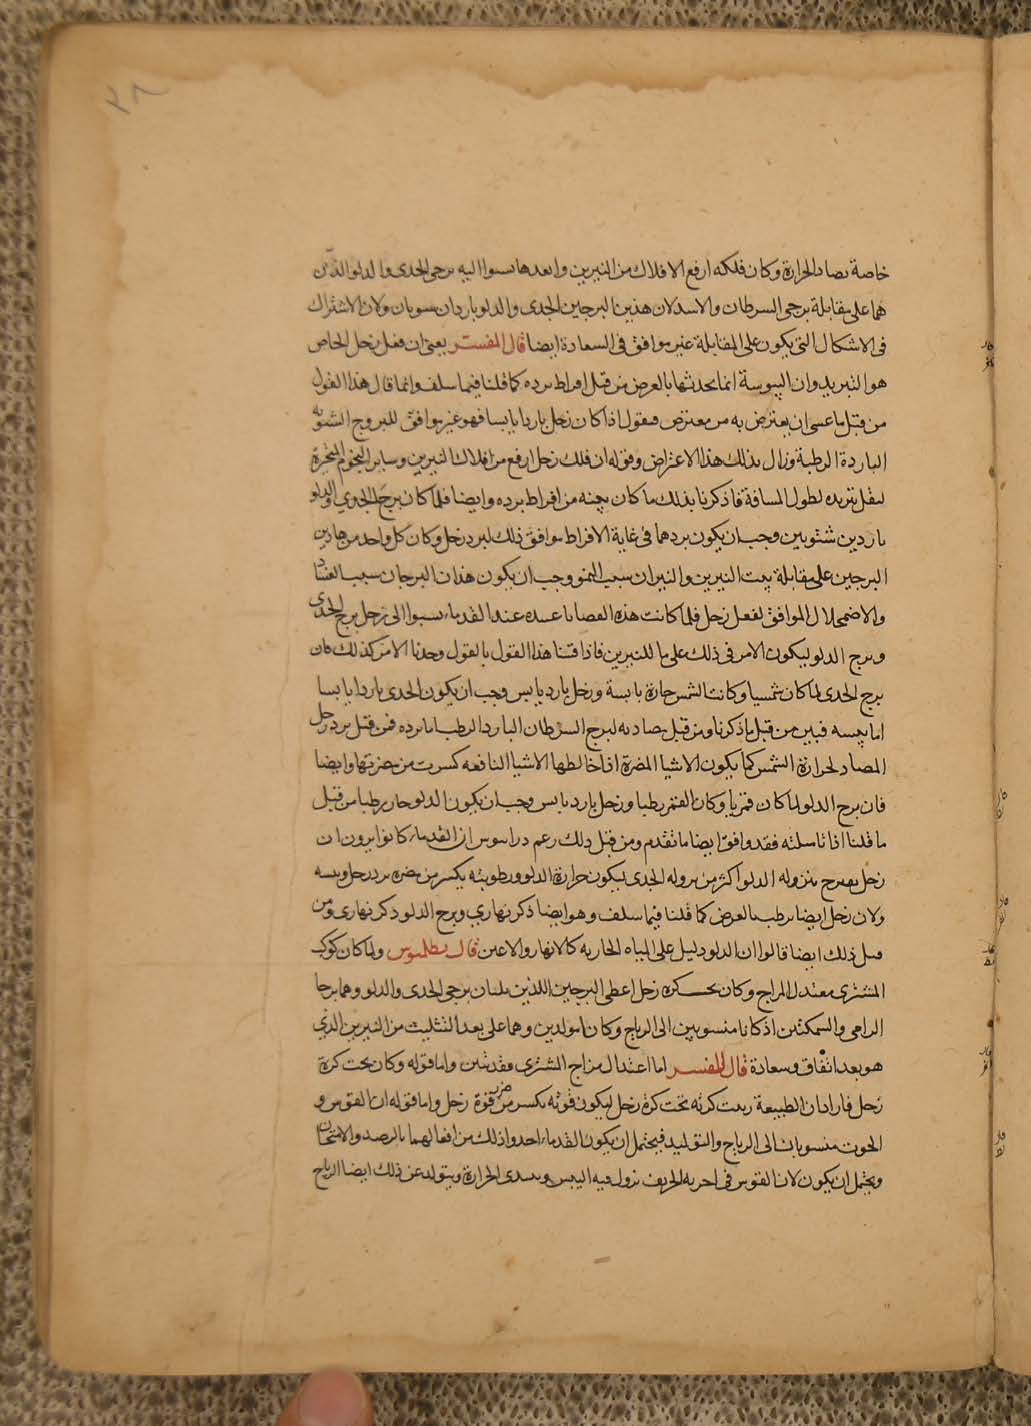 ٢٨
خاصة تضاد الحرارة وكان فلكه ارفع الافلاك من النيرين وابعدها نسبوا اليه برجى الجدى والدلو الذين
هما على مقابلة برجى السرطان والاسد لان هذين البرجين الجدى والدلو باردان شتويان ولان الاشتراك
فى الاشكال التى يكون على المقابلة غير موافق فى السعادة ايضا قال المفسر يعنى ان فعل زحل الخاص
هو التبريد وان اليبوسة انما يحدثها بالعرض من قبل افراط برده كما قلنا فيما سلف وانما قال هذا القول
من قبل ما عسى ان يعترض به من معترض فيقول اذا كان زحل باردا يابسا فهو غير موافق للبروج الشتويه
الباردة الرطبة وزال بذلك هذا الاعتراض وقوله ان فلك زحل ارفع من افلاك النيرين وساير النجوم المتحيرة
لبقل تبريده لطول المسافة فاذكرنا بذلك ما كان بينه من افراط برده وايضا فلما كان برج الجدي والدلو
باردين شتويين وجب ان يكون بردهما فى غاية الافراط موافق ذلك لبرد زحل وكان كل واحد من هاذين
البرجين على مقابلة بيت النيرين والنيران سبب النمو وجب ان يكون هذان البرجان سبب الفساد
والاضمحلال الموافق لفعل زحل فلما كانت هذه القضايا عنده عند القدماء نسبوا الى زحل برج الجدى
وبرج الدلو ليكون الامر فى ذلك على ما للنيرين فاذا قسنا هذا القول بالقول وجدنا الامر كذلك فان
برج الجدى لما كان شمسيا وكانت الشمس حارة يابسة وزحل بارد يابس وجب ان يكون الجدى باردا يابسا
اما يبسه فبين من قبل ما ذكرنا ومن قبل مضادته لبرج السرطان البارد الرطب اما برده فمن قبل برد زحل
المضاد لحرارة الشمس كما يكون الاشيا المضرة اذا خالطها الاشيا النافعه كسرت من مضرتها وايضا
فان برج الدلو لما كان قمريا وكان القمر رطبا وزحل بارد يابس وجب ان يكون الدلو حار رطبا من قبل
ما قلنا اذا تاملته فقد وافق ايضا ما تقدم ومن قبل ذلك زعم ان القدماء كانوا يرون ان
زحل يفرح بنزوله الدلو اكثر من نزوله الجدى ليكون حرارة الدلو ورطوبته يكسر من مضره برد زحل ويبسه
ولان زحل ايضا يرطب بالعرض كما قلنا فيما سلف وهو ايضا ذكر نهاري وبرج الدلو ذكر نهارى ومن
قبل ذلك ايضا قالوا ان الدلو دليل على المياه الجاريه كالانهار والاعين قال بطلميوس ولما كان كوكب
المشترى معتدل المزاج وكان تحت كره زحل اعطى البرجين اللذين يليان برجى الجدى والدلو وهما برجا
الرامى والسمكتين اذ كانا منسوبين الى الرياح وكانا مولدين وهما على بعد التثليث من النيرين الذي
هو بعد اتفاق وسعادة قال المفسر اما اعتدال مزاج المشترى فقد تبين واما قوله وكان تحت كرة
زحل فاراد ان الطبيعة رتبت كرته تحت كرة زحل ليكون قوته يكسر من مضرة قوة زحل واما قوله ان القوس و
الحوت منسوبان الى الرياح والتوليد فيحتمل ان يكون القدماء اخذوا ذلك من افعالهما بالرصد والامتحان
ويحتمل ان يكون لان القوس فى اخر به الخريف يزول فيه اليبس ويبتدى الحرارة ويتولد عن ذلك ايضا الرياح